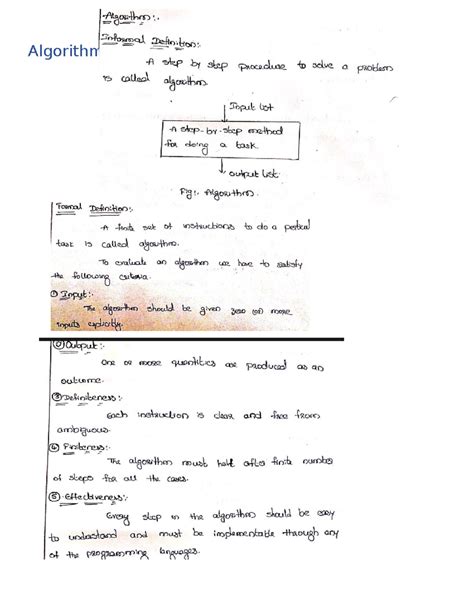 Algorithm:-
Informal Definition:-
Algorithn
A step by step procedure to solve a problem
is called algorithm.
Input list
A step-by-step method
for doing a task
output list
Fig:- Algorithm.
Formal Definition:-
A finite set of instructions to do a
task is called algorithm.
To evaluate an algorithm we have to satisfy
the following criteria.
① Input:-
The algorithm should be given zero (or) more
inputs explicitly.
② Output:-
One or more quantities are produced as an
outcome.
③ Definiteness:-
Each instruction is clear and free from
ambiguous.
④ Finiteness:-
The algorithm must halt after finite number
of steps for all the cases.
⑤ Effectiveness:-
Every step in the algorithm should be easy
to understand and must be implementable through any
of the programming languages.